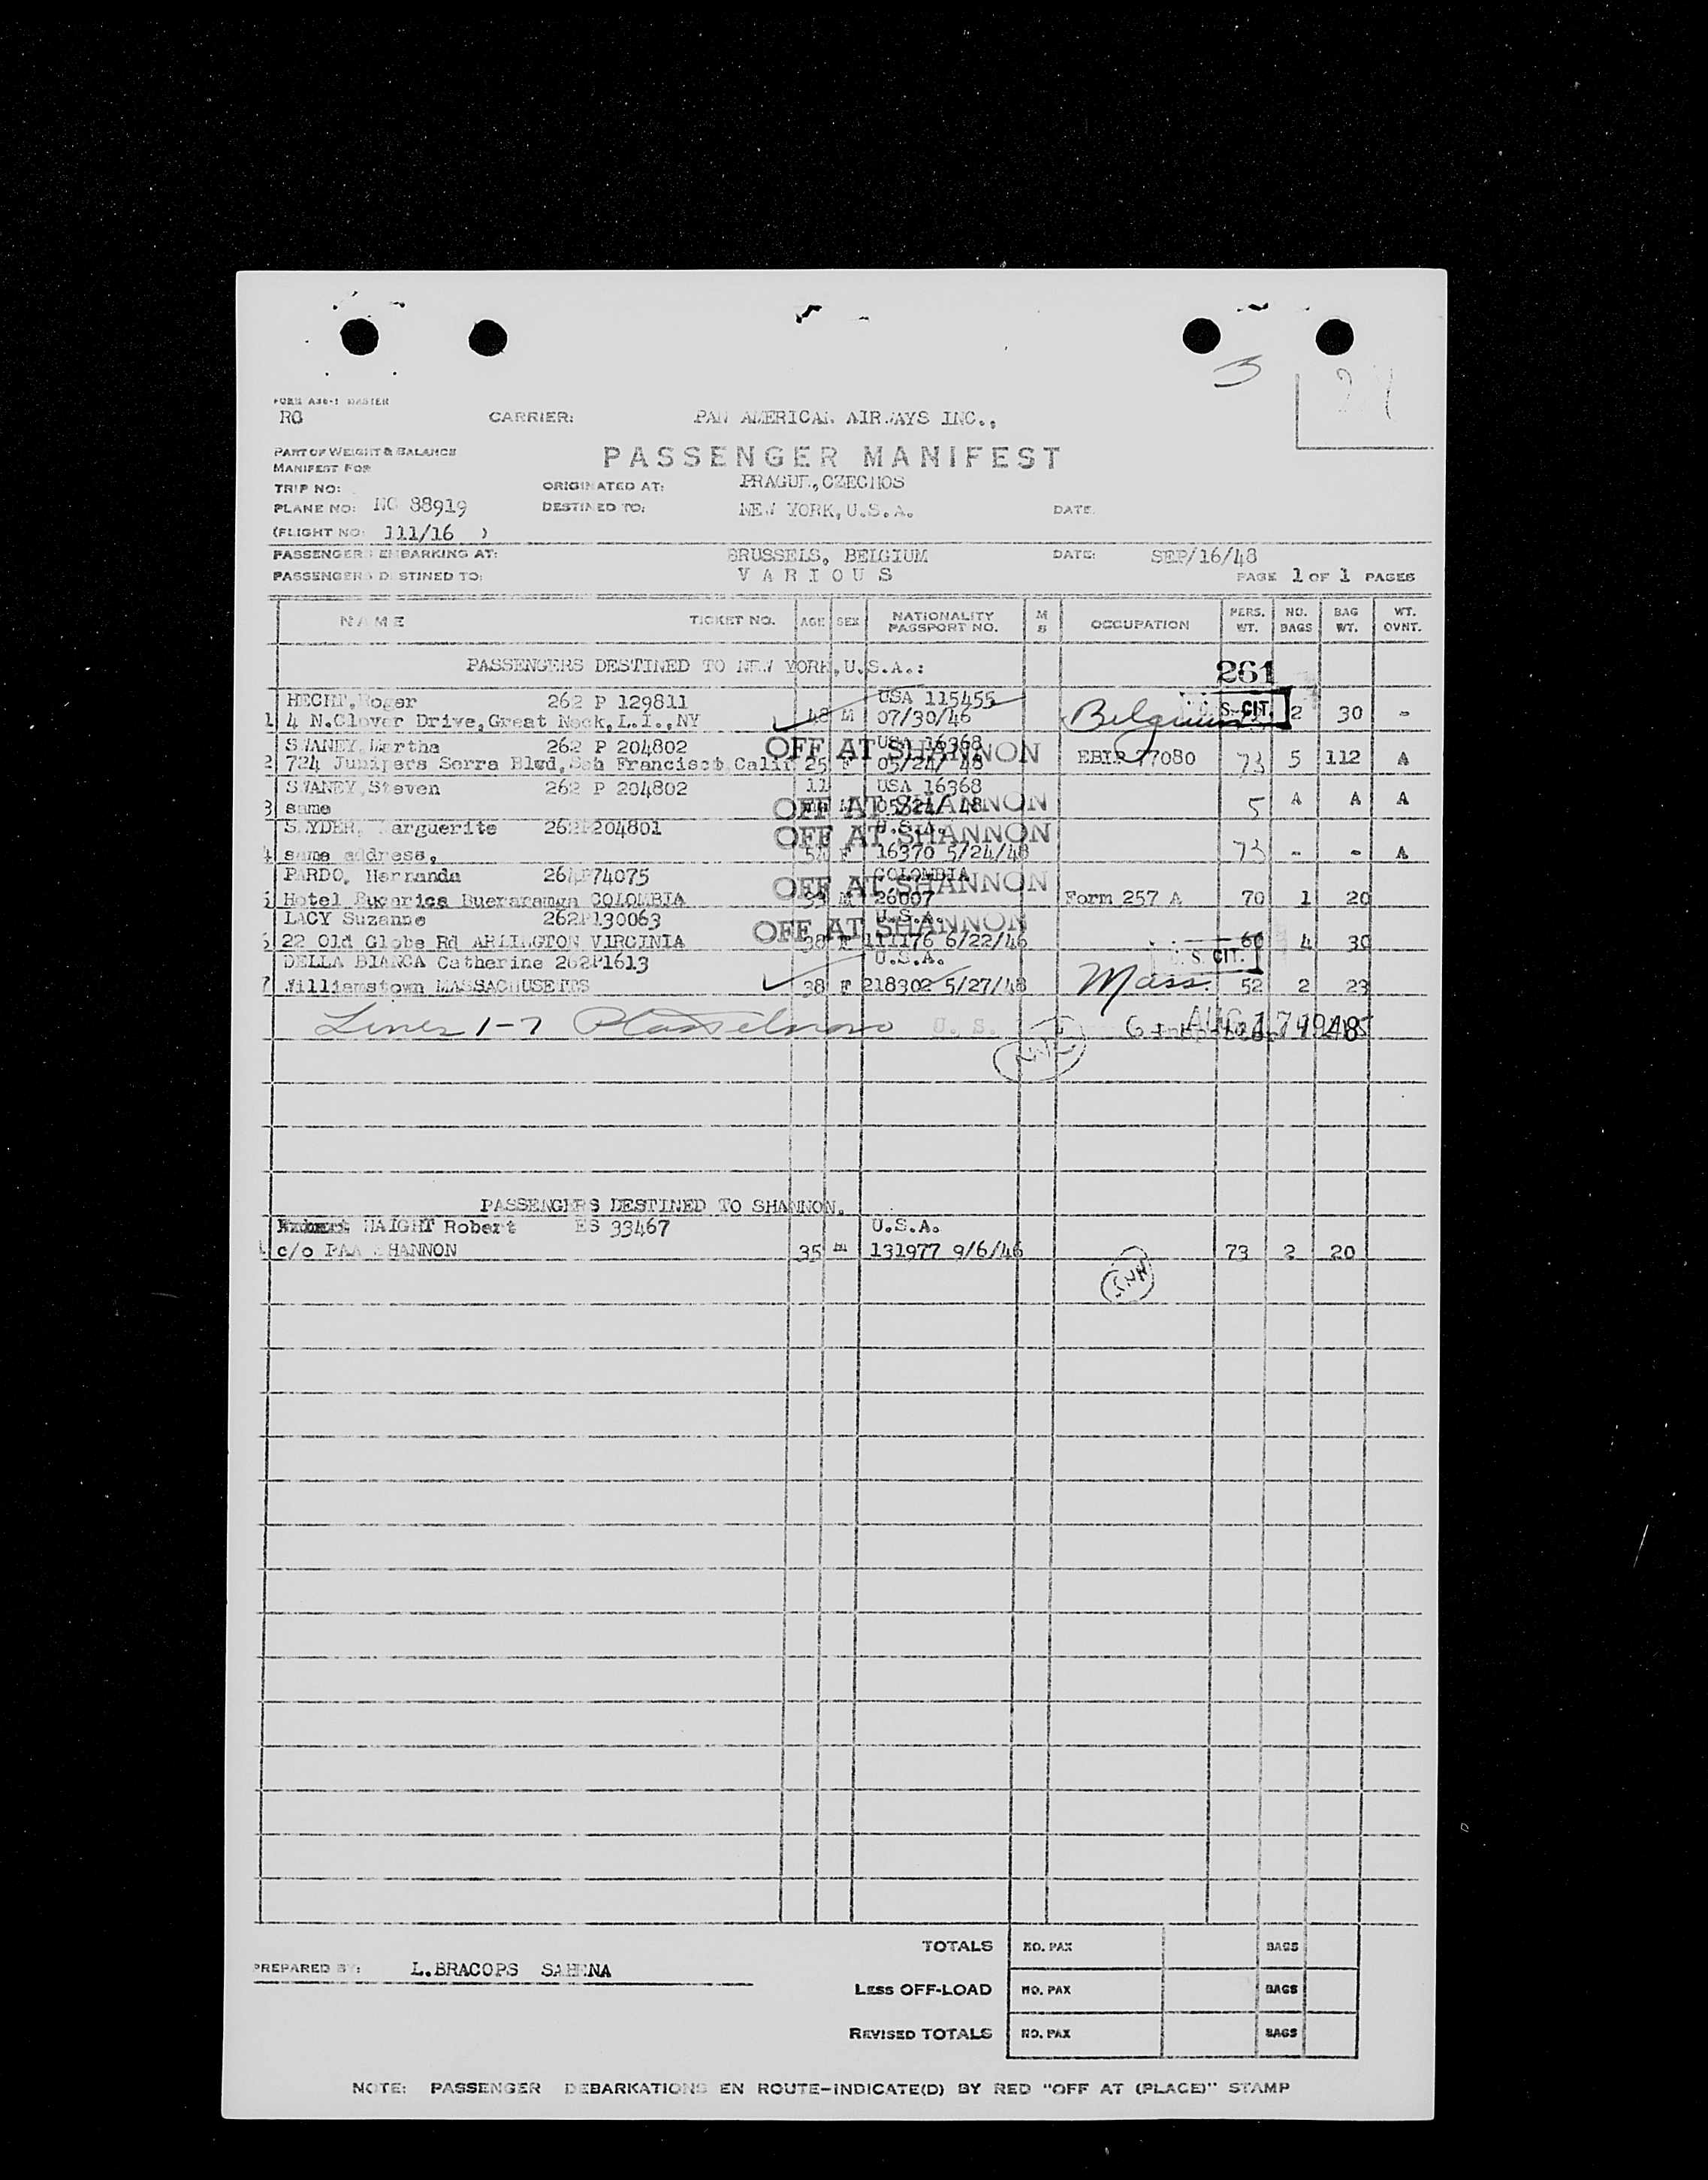 3
FORM A36-1 MASTER
RG CARRIER: PAN AMERICAN AIRWAYS INC.,
PART OF WEIGHT & BALANCE
MANIFEST FOR
PASSENGER MANIFEST
TRIP NO: ORIGINATED AT: PRAGUE,CZECHOS
PLANE NO: NC 88919 DESTINED TO: NEW YORK,U.S.A. DATE
(FLIGHT NO: 111/16 )
PASSENGERS EMBARKING AT: BRUSSELS, BELGIUM DATE: SEP/16/48
PASSENGERS DESTINED TO: VARIOUS PAGE 1 OF 1 PAGES
NAME TICKET NO. AGE SEX NATIONALITY PASSPORT NO. M S OCCUPATION PERS. WT. NO. BAGS BAG WT. WT. OVNT.
PASSENGERS DESTINED TO NEW YORK,U.S.A.: 261
HECHT,Roger 262 P 129811 USA 115455
1 4 N.Clover Drive,Great Neck,L.I.,NY 48 M 07/30/46 Belgium U. S. CIT. 2 30 -
SWANEY,Martha 262 P 204802 OFF AT SHANNON USA 16368
2 724 Junipers Serra Blvd,San Francisco,Calif 25 F 05/24/ 48 EBIR 77080 73 5 112 A
SWANEY,Steven 262 P 204802 11 USA 16368
3 same OFF AT SHANNON M 05/24/ 48 5 A A A
SNYDER, Marguerite 262P204801 OFF AT SHANNON U.S.A.
4 same address, 54 F 16370 5/24/48 73 - - A
PARDO, Hernanda 26 P74075 OFF AT SHANNON COLOMBIA
5 Hotel COLOMBIA 33 M 26007 Form 257 A 70 1 20
LACY Suzanne 262P130063 OFF AT SHANNON U.S.A.
6 22 Old Globe Rd ARLINGTON VIRGINIA 38 F 111176 6/22/46 60 4 30
DELLA BIANCA Catherine 262P1613 U.S.A. U. S. CIT.
7 Williamstown MASSACHUSETTS 38 F 218302 5/27/48 Mass. 52 2 23
Lines 1-7 U. S.
PASSENGERS DESTINED TO SHANNON.
HAIGHT Robert ES 33467 U.S.A.
1 c/o PAA SHANNON 35 M 131977 9/6/46 73 2 20
SNN
TOTALS NO. PAX BAGS
PREPARED BY: L.BRACOPS SABENA
LESS OFF-LOAD NO. PAX BAGS
REVISED TOTALS NO. PAX BAGS
NOTE: PASSENGER DEBARKATIONS EN ROUTE-INDICATE(D) BY RED "OFF AT (PLACE)" STAMP